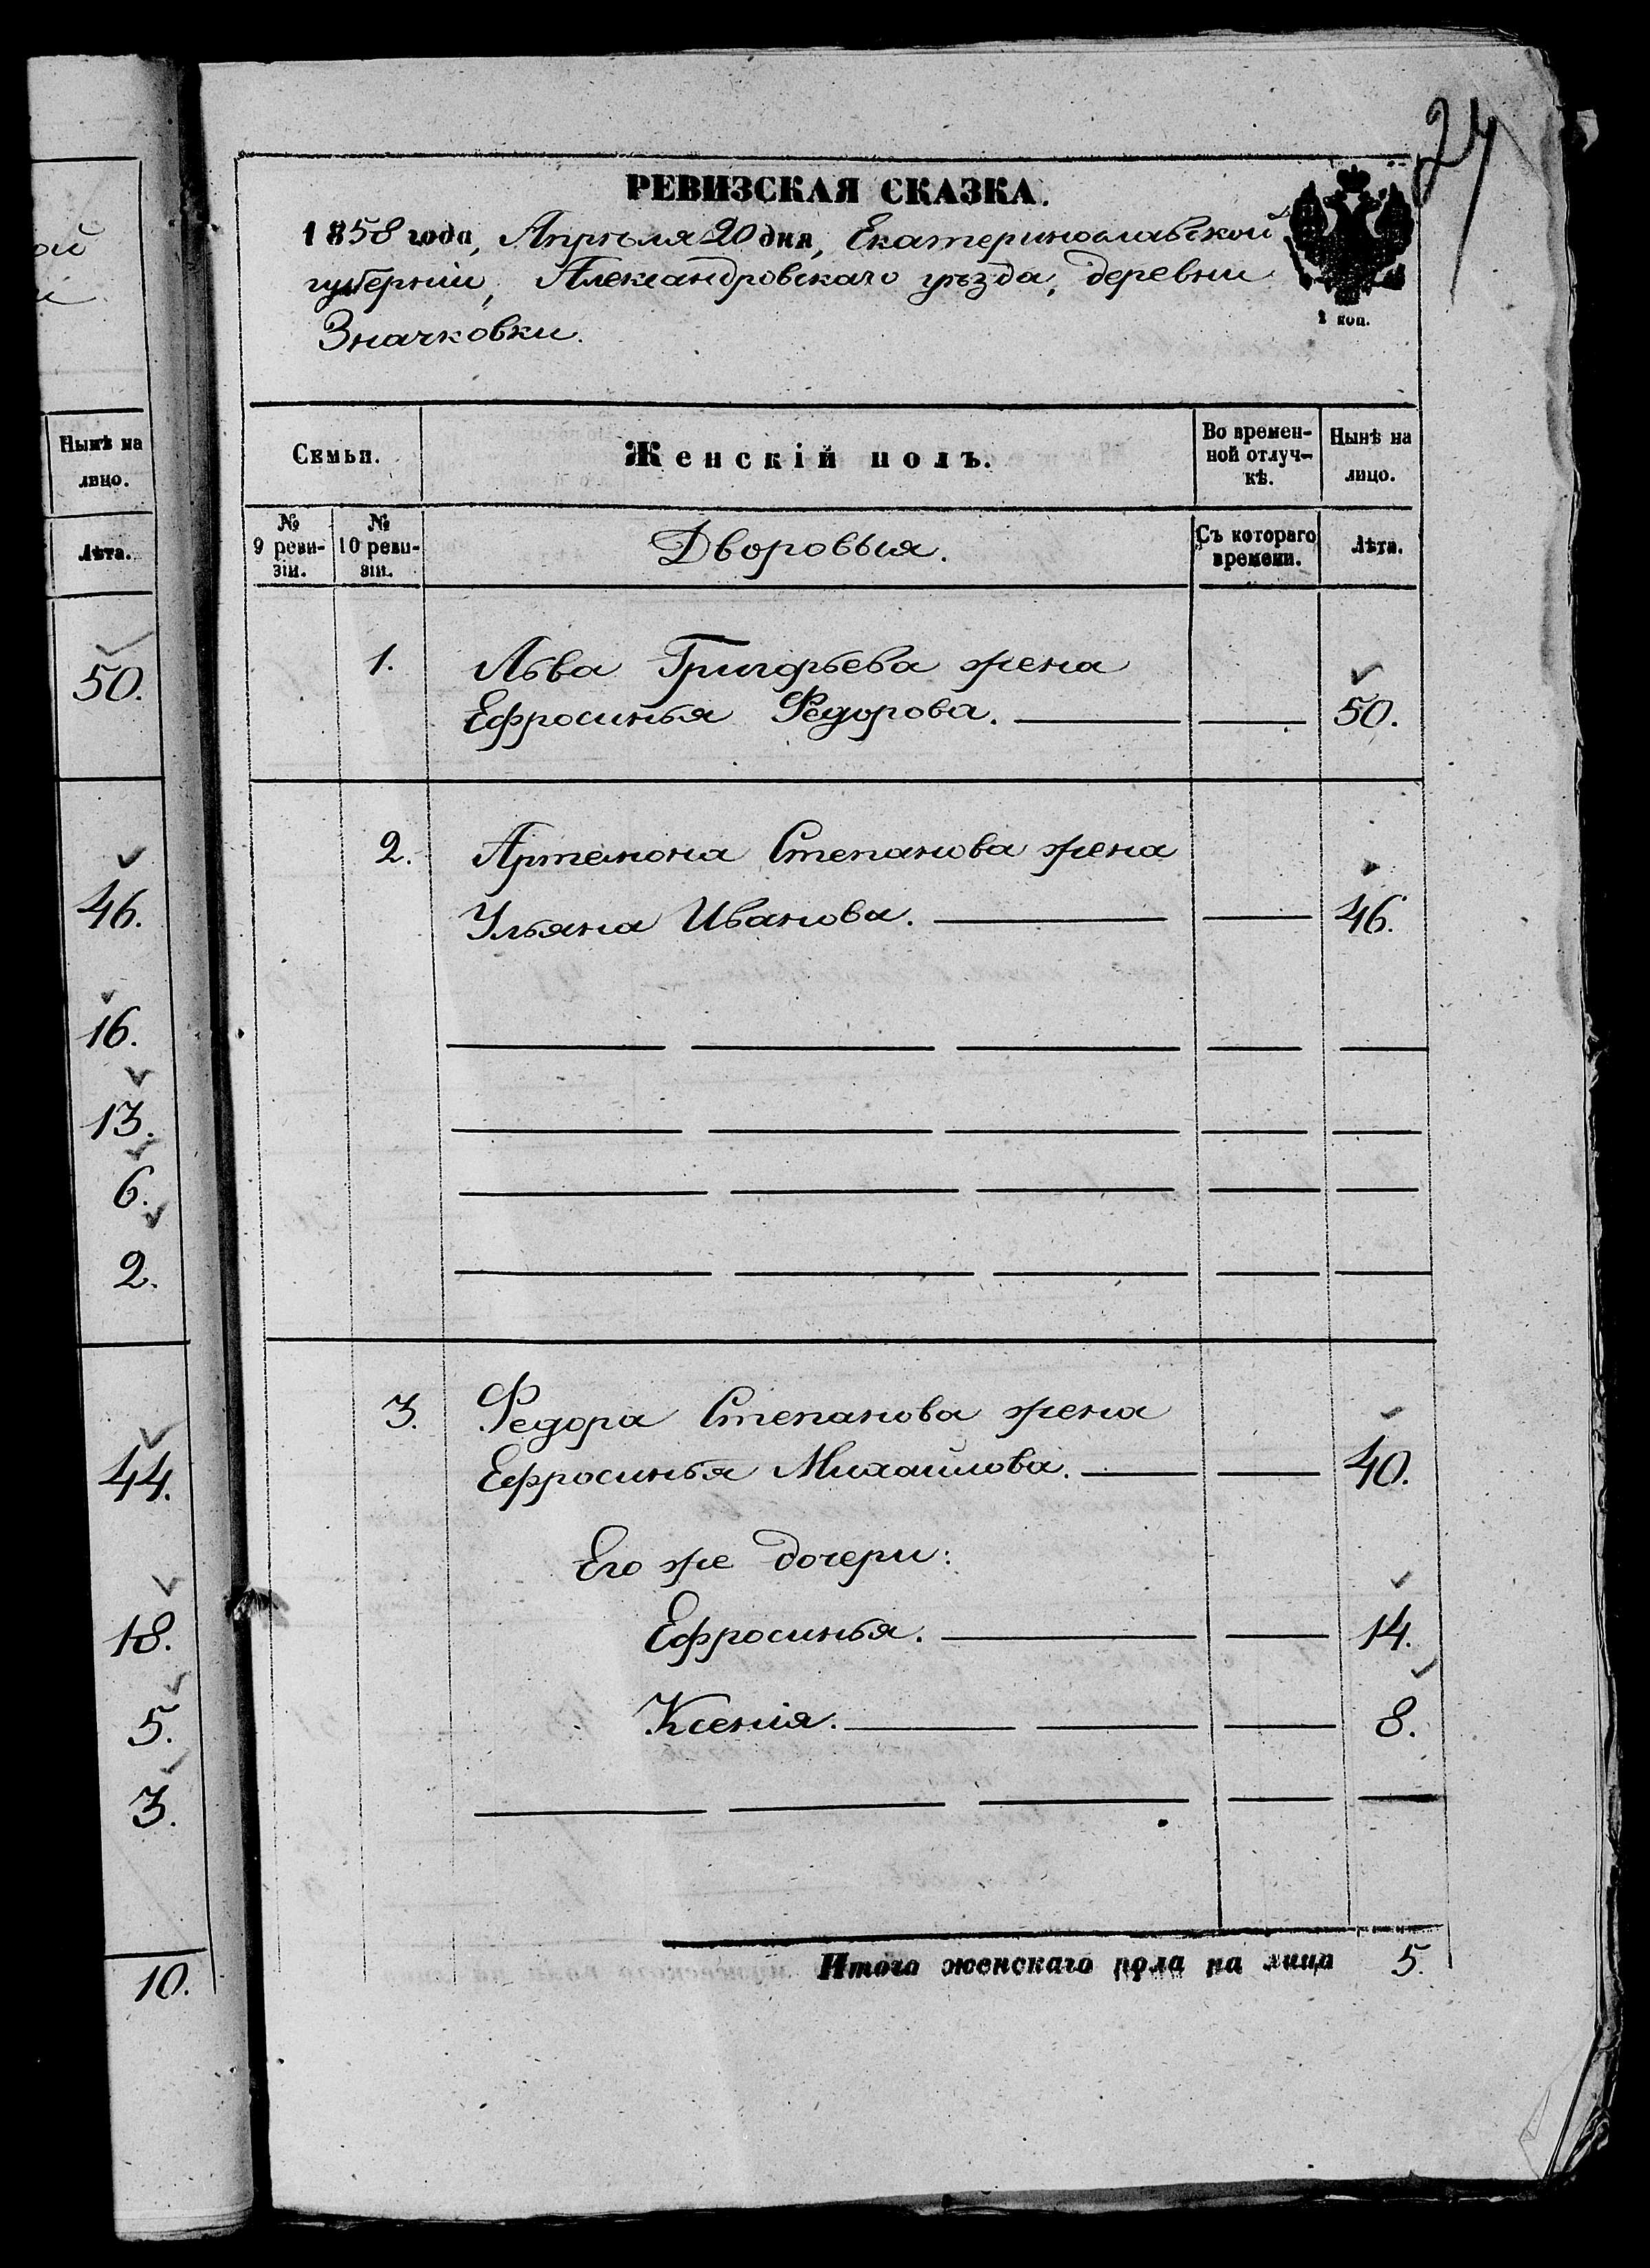 ой
и
Нынѣ на
лицо.
Лѣта.
50.
46.
16.
13.
6.
2.
44.
18.
5.
3.
10.
24
РЕВИЗСКАЯ СКАЗКА.
1858 года, Апрѣля 20 дня, Екатеринославской
губерніи, Александровскаго уѣзда, деревни
Значковки.
1 коп.
Семьи.
Женскій полъ.
Во времен-
ной отлуч-
кѣ.
Нынѣ на
лицо.
№
9 реви-
зіи.
№
10 реви-
зіи.
Дворовыя.
Съ котораго
времени.
Лѣта.
1. Льва Григорьева жена
Ефросинья Федорова. 50.
2. Артемона Степанова жена
Ульяна Иванова. 46.
3. Федора Степанова жена
Ефросинья Михайлова. 40.
Его же дочери:
Ефросинья. 14.
Ксенія. 8.
Итого женскаго пола на лицо 5.